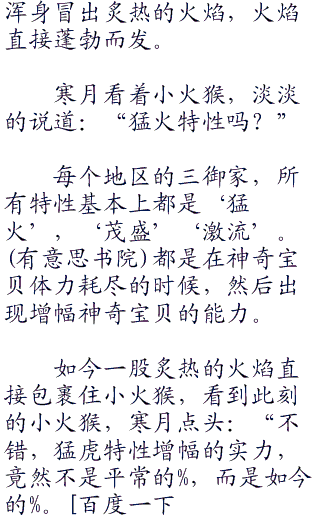 浑身冒出炙热的火焰，火焰
直接蓬勃而发。
寒月看着小火猴，淡淡
的说道：“猛火特性吗？”
每个地区的三御家，所
有特性基本上都是‘猛
火’，‘茂盛’‘激流’。
(有意思书院)都是在神奇宝
贝体力耗尽的时候，然后出
现增幅神奇宝贝的能力。
如今一股炙热的火焰直
接包裹住小火猴，看到此刻
的小火猴，寒月点头：“不
错，猛虎特性增幅的实力，
竟然不是平常的%，而是如今
的%。[百度一下